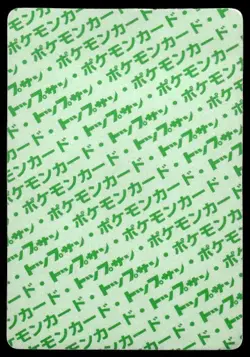 ポケモンカード
トップサン・ポケモンカード
ポケモンカード・トップサン
トップサン・ポケモンカード
ポケモンカード・トップサン・
トップサン・ポケモンカード・
ポケモンカード・トップサン・
トップサン・ポケモンカード・
ポケモンカード・トップサン・
トップサン・ポケモンカード・
ポケモンカード・トップサン・
トップサン・ポケモンカード
ポケモンカード・トップサン
トップサン・ポケモンカード